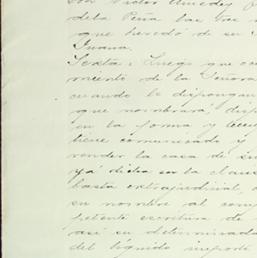 Don Victor Amedey
dela Peña las
que heredó de su
Juana.
Sexta: Luego que
miento de la Señora
cuando lo dispongan
que nombrará,
en la forma y
tiene comunicado y
vender la casa de
yá dicha en la
basta extrajudicial,
su nombre al
petente escritura de
así su determinada
del líquido importe